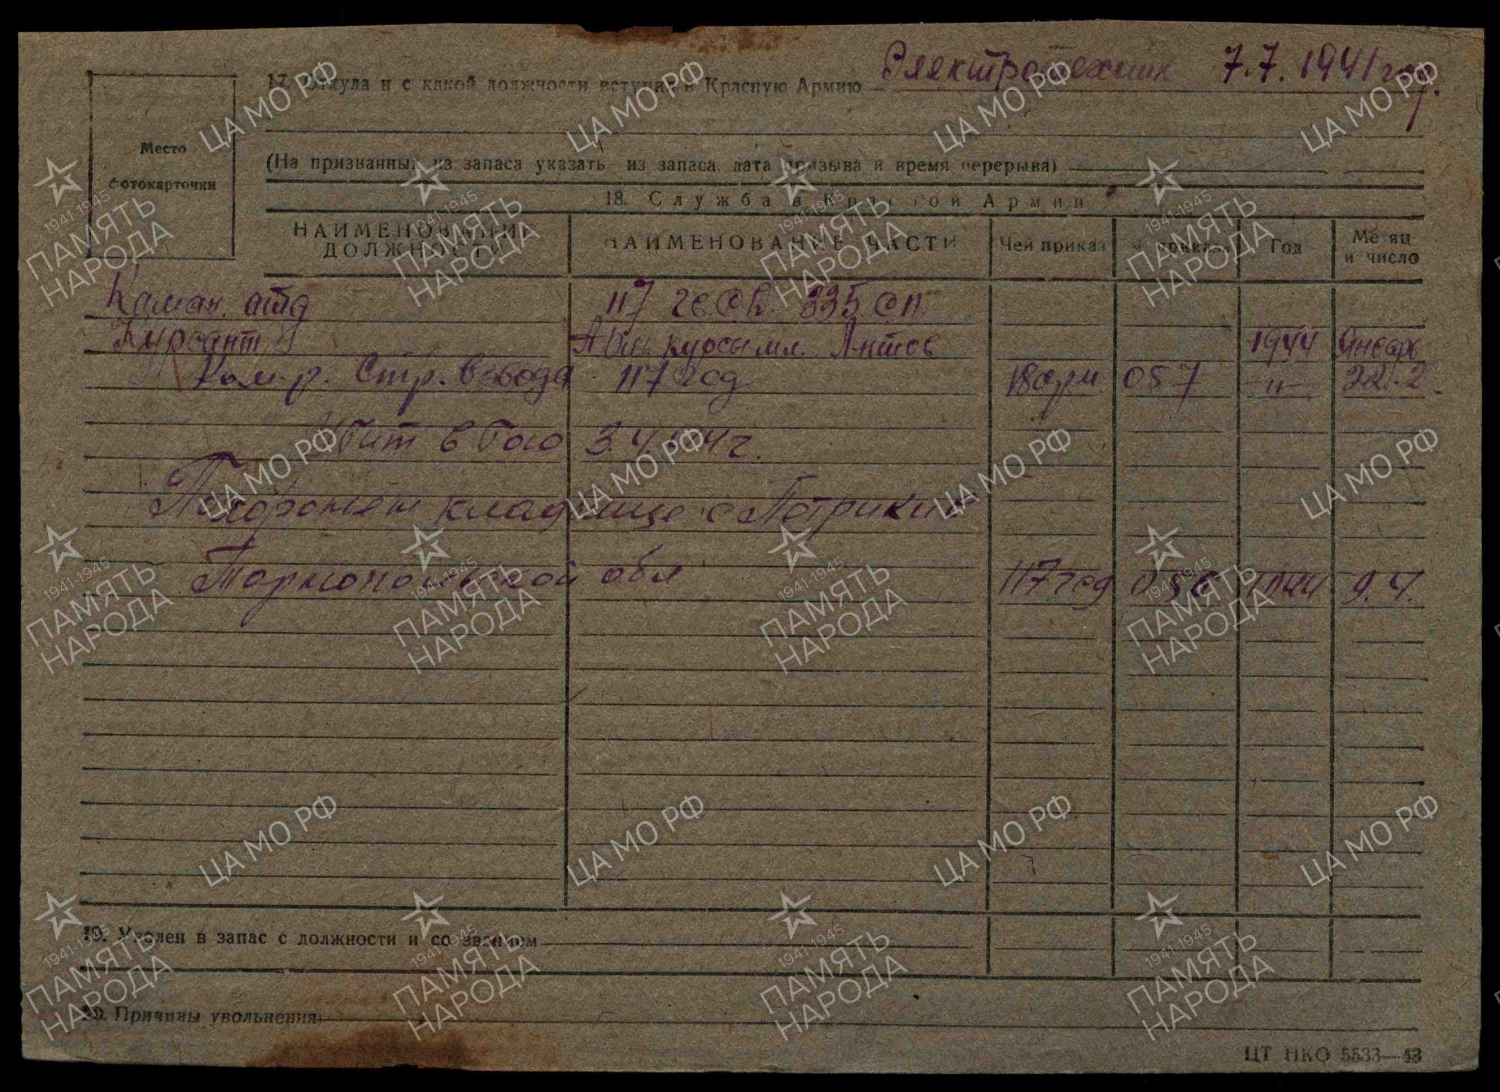 17. Откуда и с какой должности вступил в Красную Армию Электротехник 7.7.1941 год.
Место
фотокарточки
(На призванных из запаса указать из запаса дата призыва и время перерыва)
18. Служба в Красной Армии
НАИМЕНОВАНИЕ ДОЛЖНОСТИ НАИМЕНОВАНИЕ ЧАСТИ Чей приказ № приказа Год Месяц и число
Коман. отд 117 335 сп.
Курсант курсы мл. 1944 Январь
Ком-р. Стр. взвода 117 гсд 18 арм 057 -"- 22.2.
Убит в бою 3.4.44г.
Похоронен кладбище с
Тарнопольской обл 117 гсд 1944 9.4.
19. Уволен в запас с должности и со званием
20. Причины увольнения
ЦТ НКО 5533—43
ЦА МО РФ
1941-1945
ПАМЯТЬ
НАРОДА